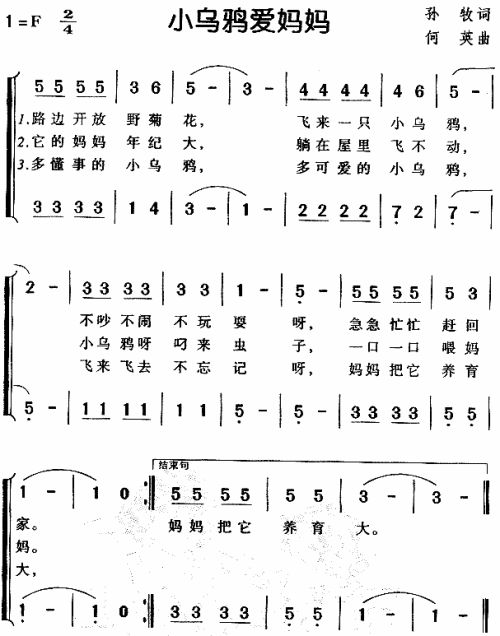 小乌鸦爱妈妈
1=F 2/4
孙 牧 词
何 英 曲
5 5 5 5 | 3 6 | 5 - | 3 - | 4 4 4 4 | 4 6 | 5 - |
1.路边开放 野菊 花, 飞来一只 小乌 鸦,
2.它的妈妈 年纪 大, 躺在屋里 飞不 动,
3.多懂事的 小乌 鸦, 多可爱的 小乌 鸦,
3 3 3 3 | 1 4 | 3 - | 1 - | 2 2 2 2 | 7 2 | 7 - |
2 - | 3 3 3 3 | 3 3 | 1 - | 5 - | 5 5 5 5 | 5 3 |
不吵不闹 不玩 耍 呀, 急急忙忙 赶回
小乌鸦呀 叼来 虫 子, 一口一口 喂妈
飞来飞去 不忘 记 呀, 妈妈把它 养育
5 - | 1 1 1 1 | 1 1 | 5 - | 5 - | 3 3 3 3 | 5 5 |
结束句
1 - | 1 0 :| 5 5 5 5 | 5 5 | 3 - | 3 - |
家。 妈妈把它 养育 大。
妈。
大,
1 - | 1 0 :| 3 3 3 3 | 5 5 | 1 - | 1 - |